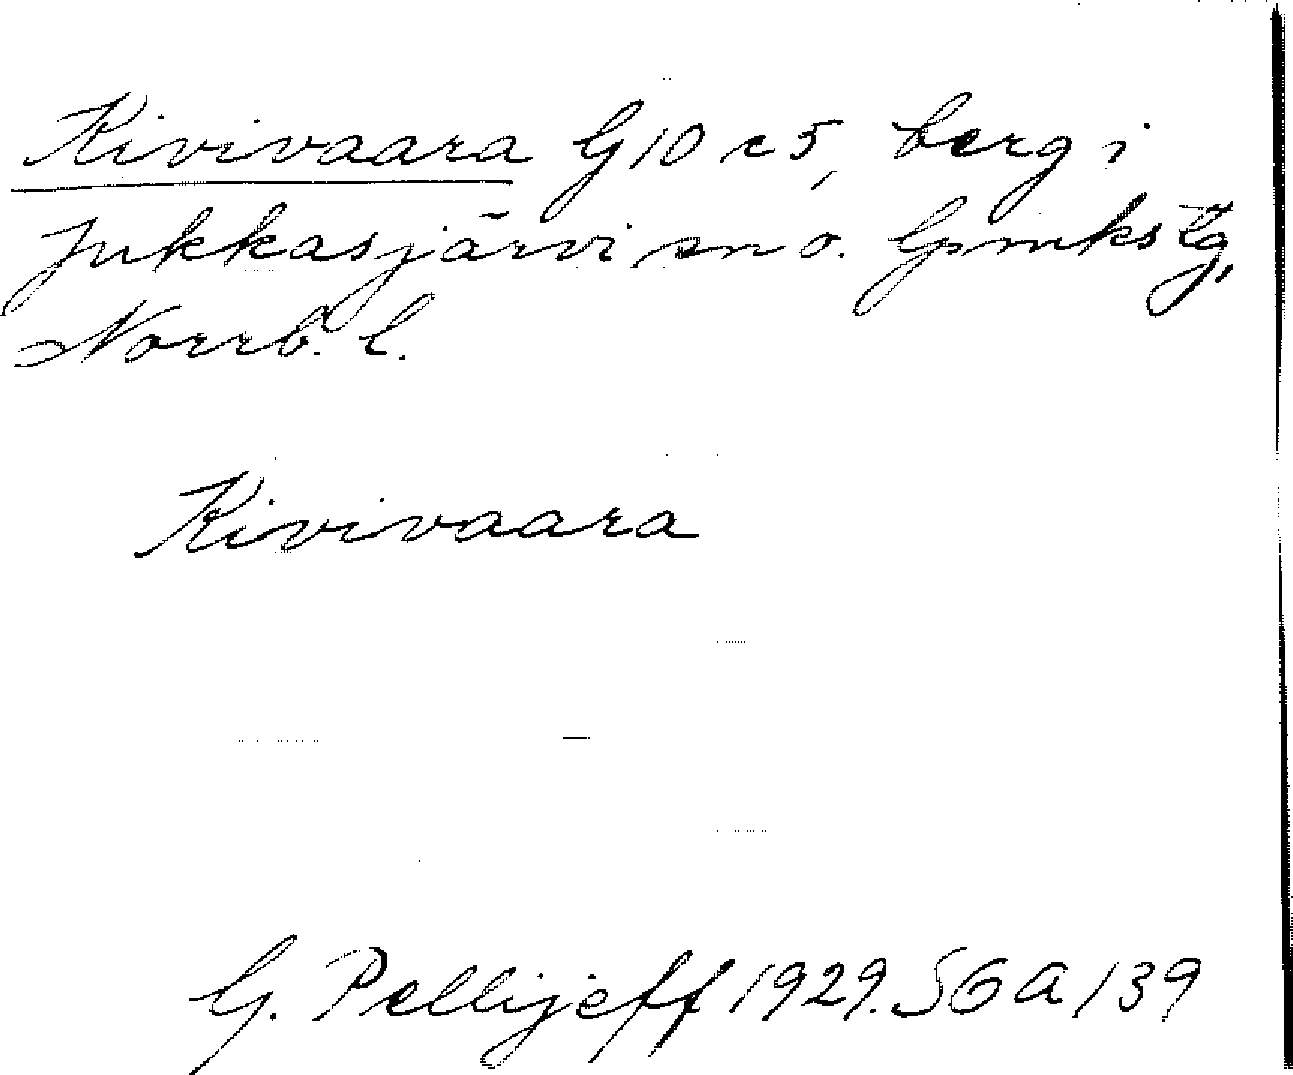 Kivivaara G10c5, berg i
Jukkasjärvi sn o. lpmkstg,
Norrb. l.
Kivivaara
G. Pellijeff 1929. SGA 139